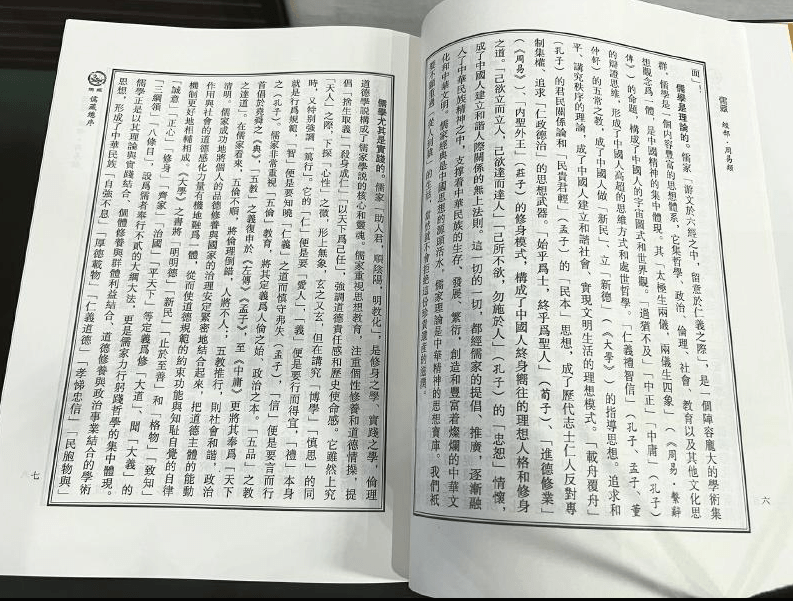 儒藏 經部 周易類
面」！
儒學是理論的。儒家「游文於六經之中，留意於仁義之際」，是一個陣容龐大的學術集
群，儒學是一個内容豐富的思想體系，它集哲學、政治、倫理、社會、教育以及其他文化思
想觀念爲一體，是中國精神的集中體現。其「太極生兩儀，兩儀生四象」（《周易·繫辭
傳》）的命題，構成了中國人的宇宙圖式和世界觀。「過猶不及」、「中正」、「中庸」（孔子）
的辯證思维，形成了中國人高超的思維方式和處世哲學。「仁義禮智信」（孔子、孟子、董
仲舒）的五常之教，成了中國人做「新民」、立「新德」（《大學》）的指導思想。追求和
平、講究秩序的理論，成了中國人建立和諧社會、實現文明生活的理想模式。「載舟覆舟」
（孔子）的君民關係論和「民貴君輕」（孟子）的「民本」思想，成了歷代志士仁人反對專
制集權、追求「仁政德治」的思想武器。「始乎爲士，終乎爲聖人」（荀子）、「進德修業」
（《周易》）、「内聖外王」（莊子）的修身模式，構成了中國人終身嚮往的理想人格和修身
之道。「己欲立而立人，己欲達而達人」「己所不欲，勿施於人」（孔子）的「忠恕」情懷，
成了中國人建立和諧人際關係的無上法則。這一切的一切，都經儒家的提倡、推廣，逐漸融
入了中華民族精神之中，支撐着中華民族的生存、發展、繁衍，創造和豐富着燦爛的中華文
化和中華文明。儒家經典是中國思想的源頭活水，儒家理論是中華精神的思想寶庫。我們祇
要不願重過「從人到猿」的生活，當然就不會拒絶這份珍貴遺産的滋潤。
六
儒藏
儒藏總序
儒學尤其是實踐的。儒家「助人君，順陰陽，明教化」，是修身之學、實踐之學，倫理
道德學説構成了儒家學説的核心和靈魂。儒家重視思想教育，注重個性修養和道德情操，提
倡「捨生取義」、「殺身成仁」、「以天下爲己任」，強調道德責任感和歷史使命感。它雖然上究
「天人」之際，下探「心性」之微，形上無象，玄之又玄，但在講究「博學」「慎思」的同
時，又特别強調「篤行」。它的「仁」便是要「愛人」，「義」便是要行而得宜，「禮」本身
就是行爲規範，「智」便是要知曉「仁義」之道而慎守弗失（孟子），「信」便是要言而行
之（孔子）。儒家非常重視「五倫」教育，將其定義爲人倫之始、政治之本。「五品」之教
首倡於堯舜之《典》，「五教」之義復申於《左傳》《孟子》，至《中庸》更將其奉爲「天下
之達道」。在儒家看來，五倫不順，將倫理倒錯，人將不人；五教推行，則社會和諧，政治
清明。儒家成功地將個人的品德修養與國家的治理安寇緊密地結合起來，把道德主體的能動
作用與社會的道德感化力量有機地融爲一體，從而使道德規範的約束功能與知恥自覺的自律
機制更好地相輔相成。《大學》之書將「明明德」「新民」「止於至善」和「格物」「致知」
「誠意」「正心」「修身」「齊家」「治國」「平天下」等定義爲修「大道」、聞「大義」的
「三綱領」、「八條目」，設爲儒者奉行不貳的大綱大法，更是儒家力行躬踐哲學的集中體現。
儒學正是以其理論與實踐結合、個體修養與群體利益結合、道德修養與政治事業結合的學術
思想，形成了中華民族「自強不息」、「厚德載物」、「仁義道德」、「孝悌忠信」、「民胞物與」
七